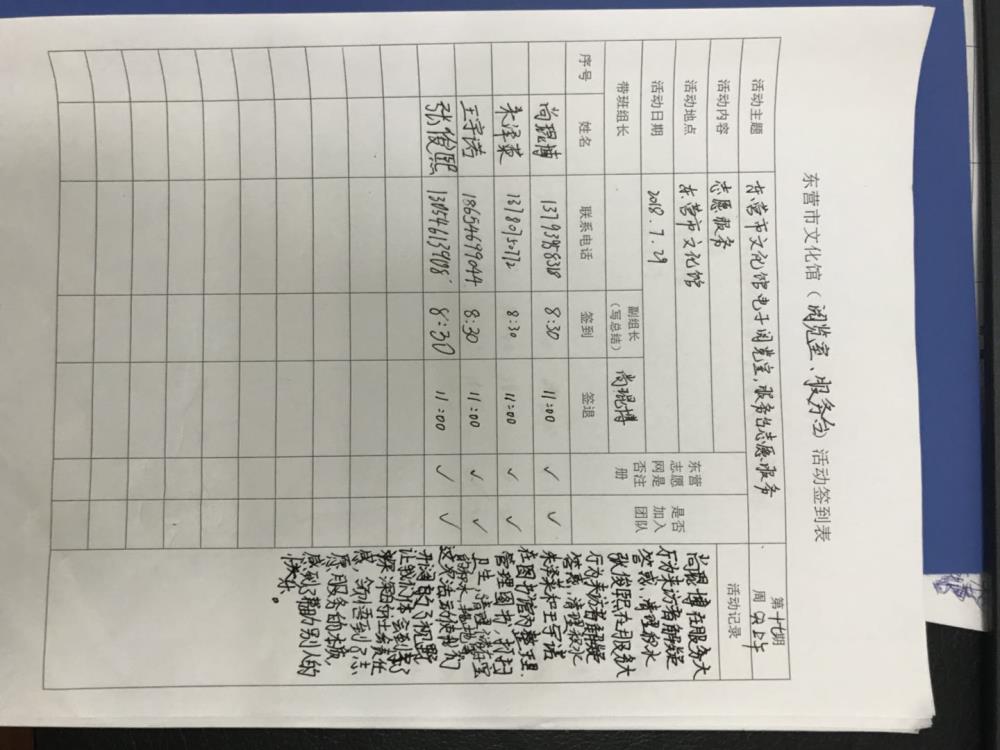 东营市文化馆（阅览室、服务台）活动签到表
活动主题 东营市文化馆电子阅览室,服务台志愿服务
第十七期
活动内容 志愿服务
活动地点 东营市文化馆
活动日期 2018.7.29
带班组长
副组长（写总结） 尚琨博
活动记录
序号 姓名 联系电话 签到 签退 东营志愿网是否注册 是否加入团队
尚琨博 8:30 11:00 ✓ ✓
朱泽莱 13780750772 8:30 11:00 ✓ ✓
王宇诺 18654699044 8:30 11:00 ✓ ✓
张俊熙 8:30 11:00 ✓ ✓
尚琨博在服务大
厅为来访者解疑
答惑、清理积水
张俊熙在服务大
厅为来访者解疑
答惑,清理积水
朱泽莱和王宇诺
在图书馆内整理
管理图书,打扫
卫生,清理
这次活动使我们
开阔自己了视野
让我们体会到了
感,领悟到了志
愿服务的本质,
感到了帮助别人的
快乐。